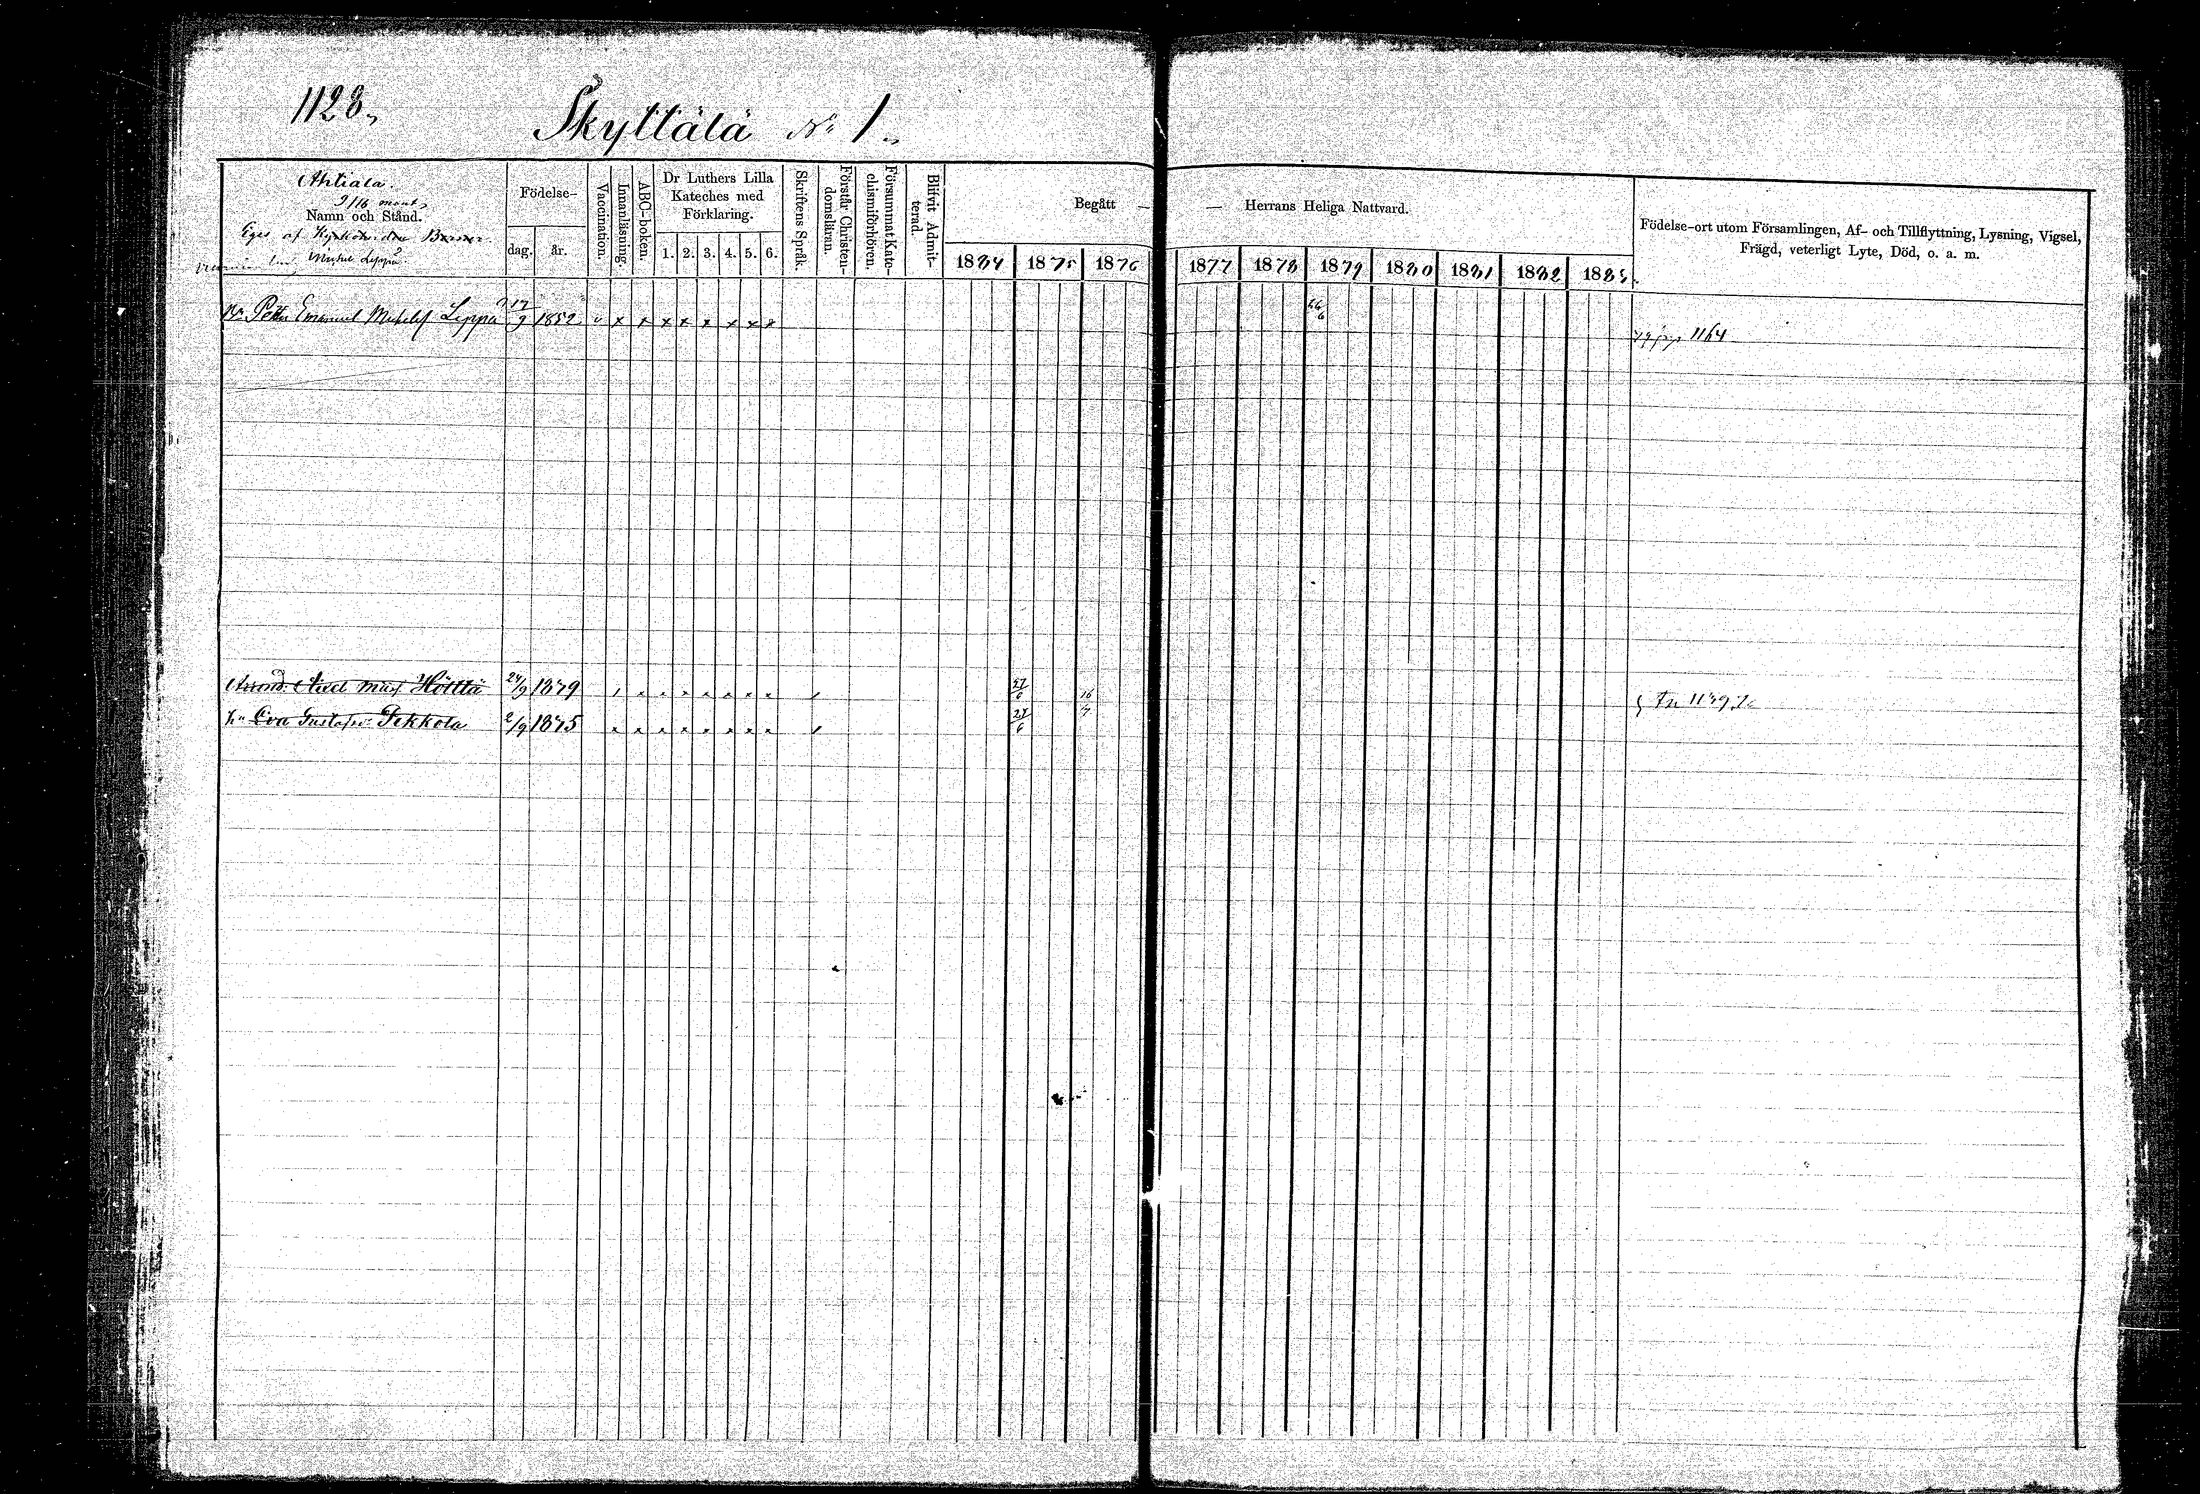 1128.
Skyttälä No 1.
Ahtiala.
9/16 mant.
Namn och Stånd.
Eges af
Michel Leppä
Födelse-
dag. år.
Vaccination.
Innanläsning.
ABC-boken.
Dr Luthers Lilla Kateches med Förklaring.
1. 2. 3. 4. 5. 6.
Skriftens Språk.
Förstår Christen-domsläran.
Försummat Kate-chismiförhören.
Blifvit Admit-terad.
Begått — — Herrans Heliga Nattvard.
1884 1875 1876 1877 1878 1879 1880 1881 1882 1883
Födelse-ort utom Församlingen, Af- och Tillflyttning, Lysning, Vigsel,
Frägd, veterligt Lyte, Död, o. a. m.
Petter Emanuel Michelsf Leppä 17/9 1852 v x x x x x x x x 26/6 1164
Axel Höltta 24/9 1879 27/6 16
Eva Gustafsv. Pekkola 2/9 1875 27/6 7